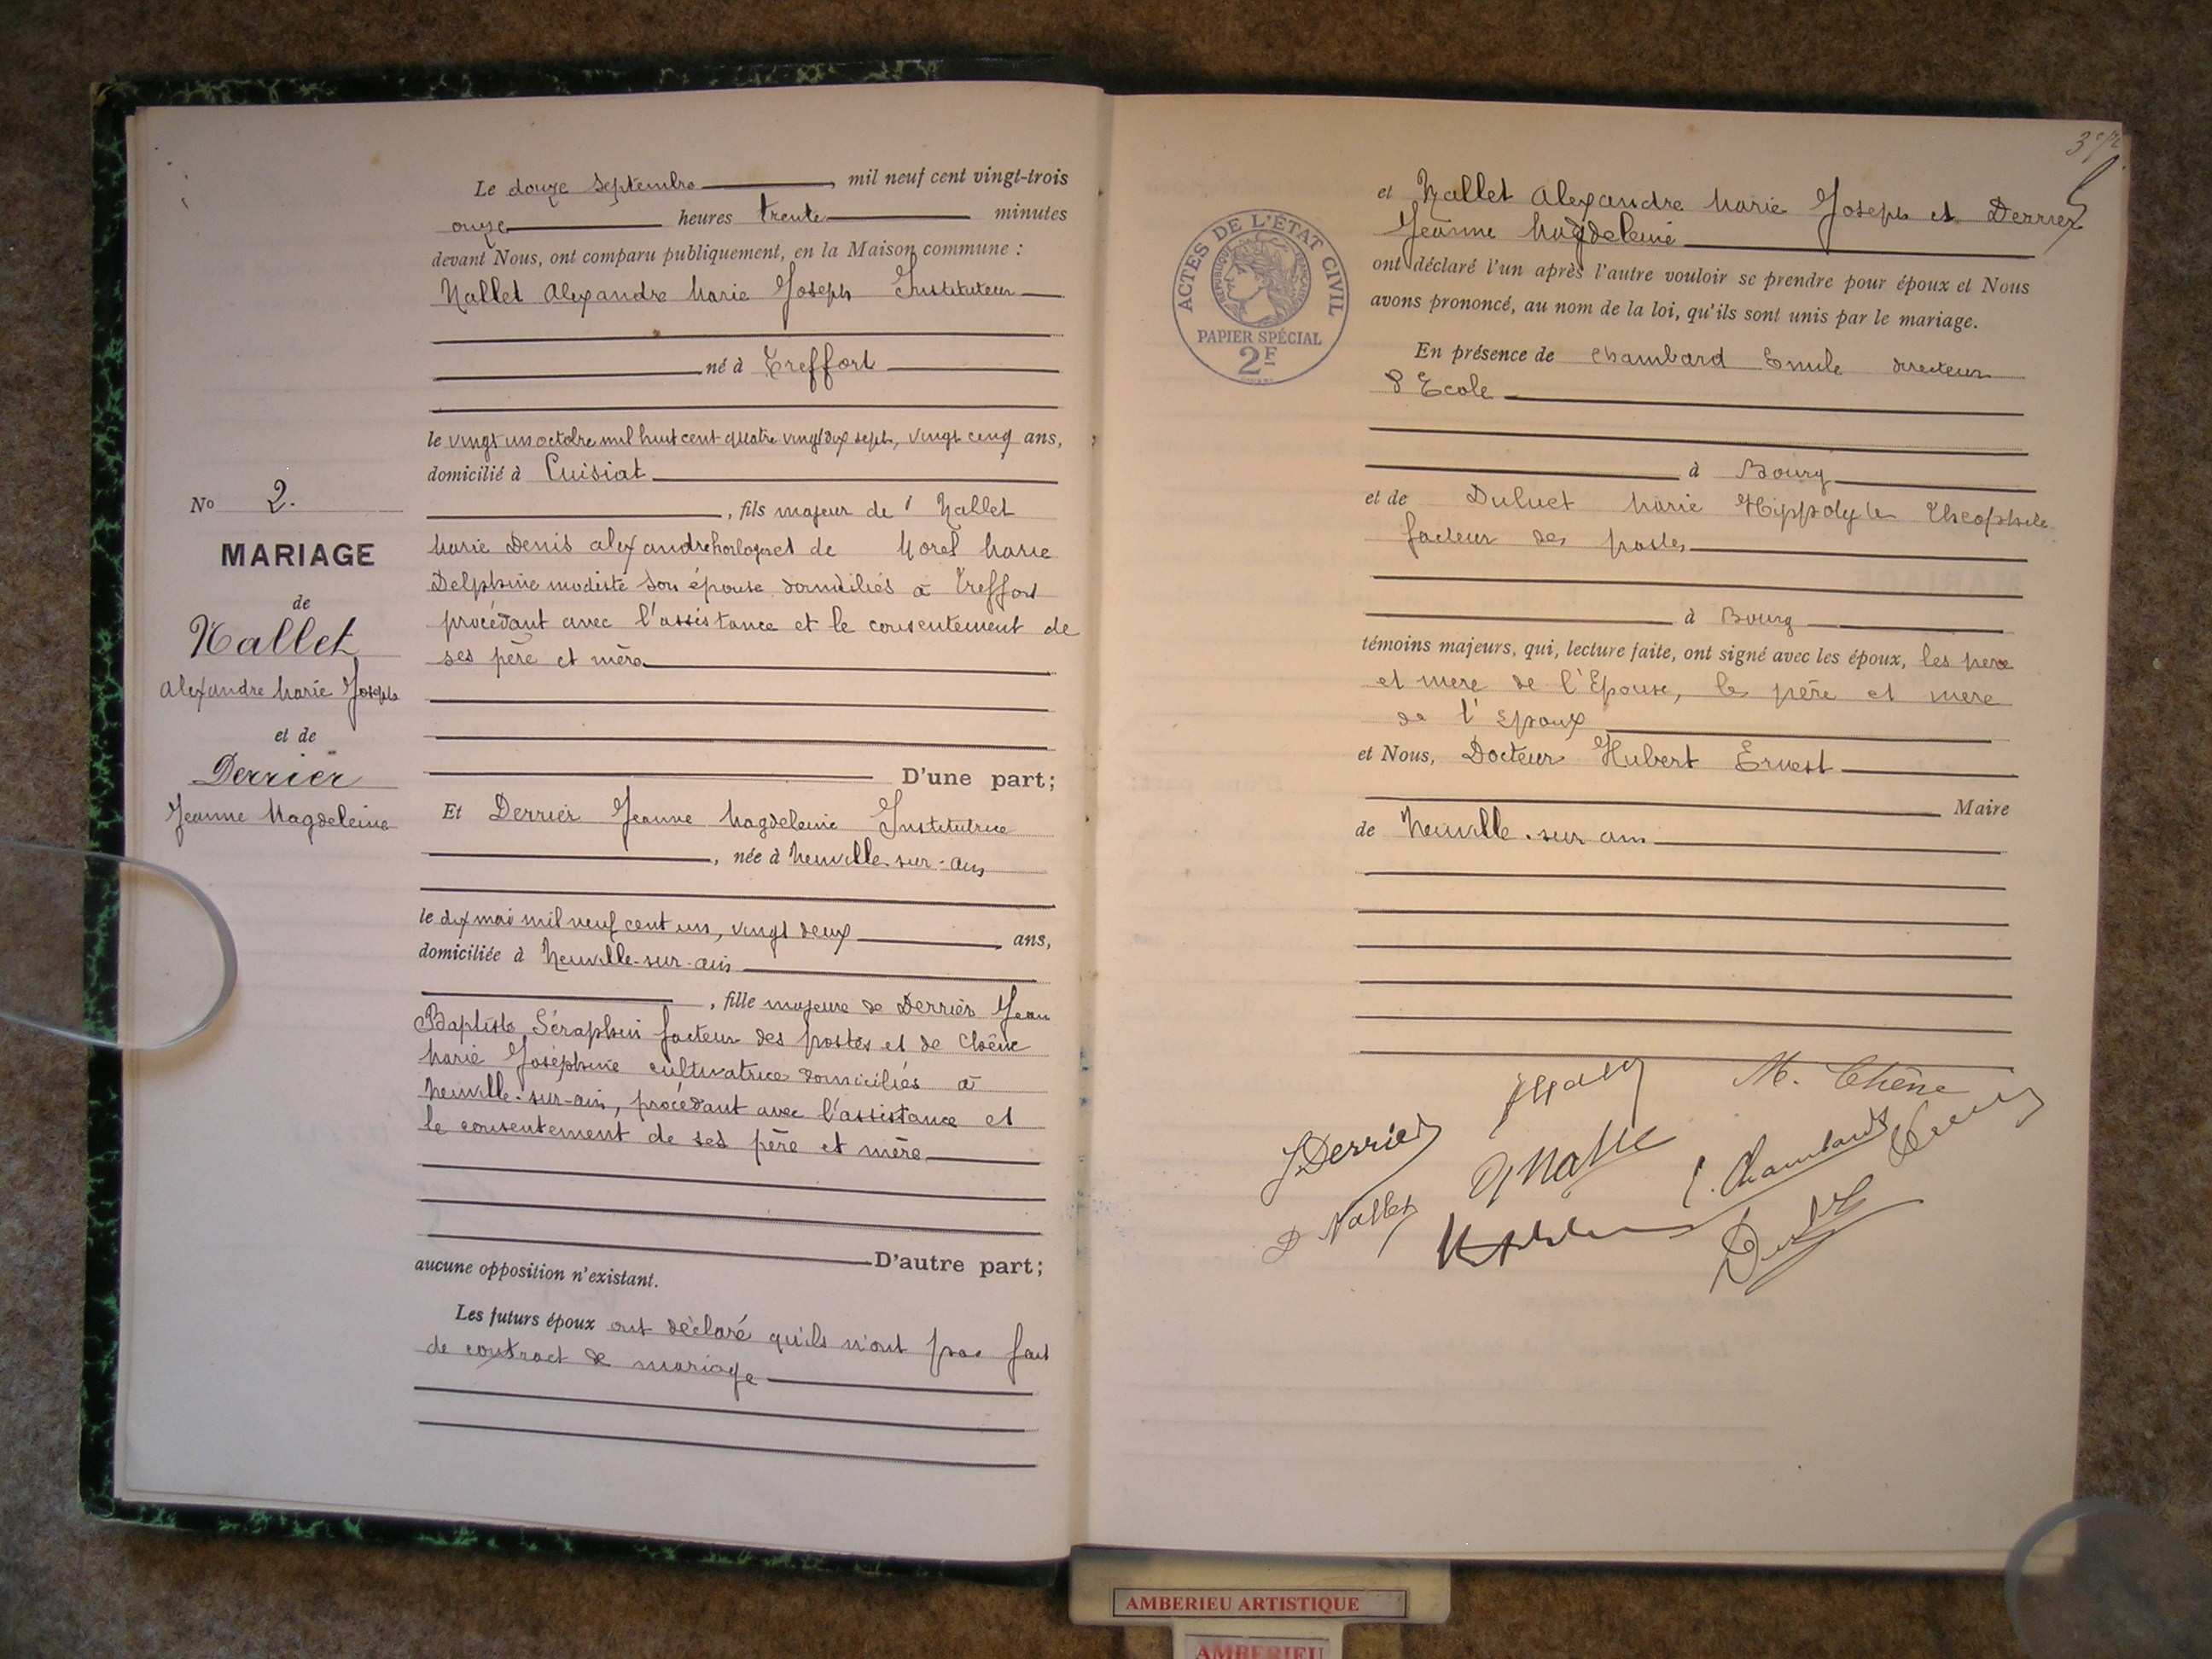 Le douze Septembre, mil neuf cent vingt-trois
onze heures trente minutes
devant Nous, ont comparu publiquement, en la Maison commune :
Nallet Alexandre Marie Joseph Instituteur
né à Treffort
le vingt un octobre mil huit cent quatre vingt dix sept, vingt cinq ans,
domicilié à Cuisiat
, fils majeur de Nallet
Marie Denis Alexandre horloger et de Morel Marie
Delphine modiste son épouse domiciliés à Treffort
procédant avec l'assistance et le consentement de
ses père et mère
D'une part;
No 2.
MARIAGE
de
Nallet
Alexandre Marie Joseph
et de
Derrier
Jeanne Magdeleine
Et Derrier Jeanne Magdeleine Institutrice
, née à Neuville-sur-Ain
le dix mai mil neuf cent un, vingt deux ans,
domiciliée à Neuville-sur-Ain
, fille majeure de Derrier Jean
Baptiste Séraphin facteur des postes et de Chêne
Marie Joséphine cultivatrice domiciliés à
Neuville-sur-Ain, procédant avec l'assistance et
le consentement de ses père et mère
D'autre part;
aucune opposition n'existant.
Les futurs époux ont déclaré qu'ils n'ont pas fait
de contract de mariage
et Nallet Alexandre Marie Joseph et Derrier
Jeanne Magdeleine
ont déclaré l'un après l'autre vouloir se prendre pour époux et Nous
avons prononcé, au nom de la loi, qu'ils sont unis par le mariage.
ACTES DE L'ÉTAT CIVIL
RÉPUBLIQUE FRANÇAISE
PAPIER SPÉCIAL
2F
En présence de Chambard Emile directeur
d'Ecole
à Bourg
et de Duluet Marie Hippolyte Theophile
facteur des postes
à Bourg
témoins majeurs, qui, lecture faite, ont signé avec les époux, les pere
et mere de l'Epouse, les père et mere
de l'Epoux
et Nous, Docteur Hubert Ernest
Maire
de Neuville-sur-Ain
M. Chêne
J Derrier
E. Chambard
D Nallet
AMBERIEU ARTISTIQUE
AMBERIEU